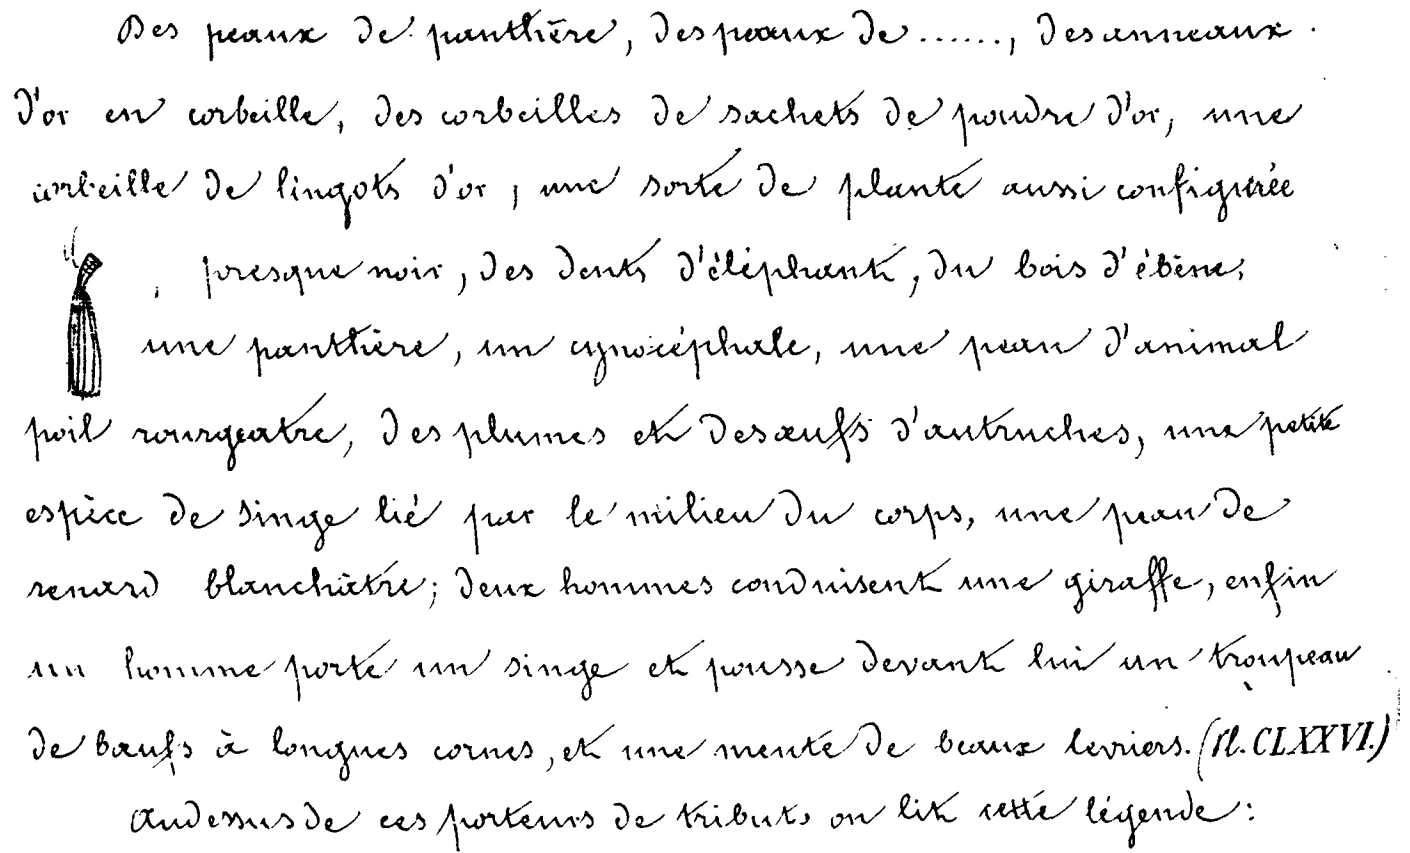 Des peaux de panthère, des peaux de ......, des anneaux
d'or en corbeille, des corbeilles de sachets de poudre d'or, une
corbeille de lingots d'or, une sorte de plante aussi configurée
, presque noir, des dents d'éléphant, du bois d'ébène,
une panthère, un cynocéphale, une peau d'animal
poil rougeatre, des plumes et des œufs d'autruches, une petite
espèce de singe lié par le milieu du corps, une peau de
renard blanchâtre; deux hommes conduisent une giraffe, enfin
un homme porte un singe et pousse devant lui un troupeau
de bœufs à longues cornes, et une mente de beaux levriers. (Pl. CLXXVI.)
Au dessus de ces porteurs de tributs on lit cette légende: